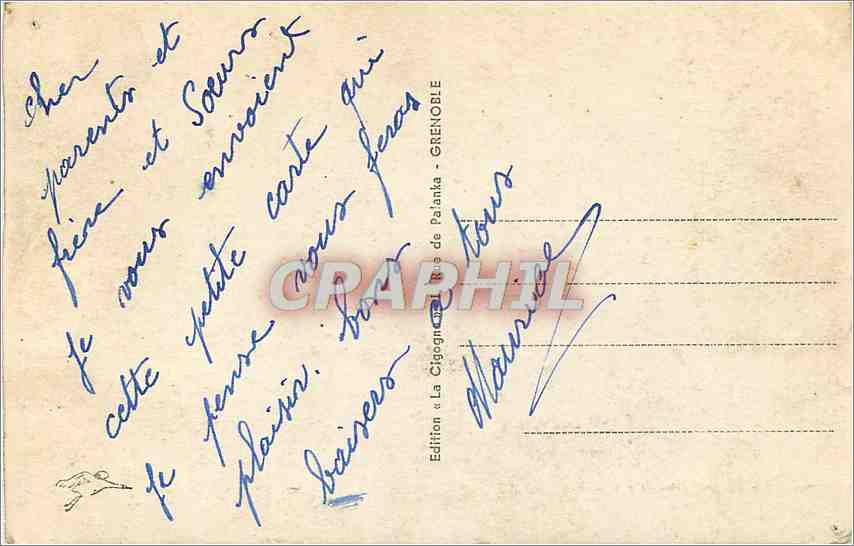 Cher
parents et
frère et Sœurs
je vous envoient
cette petite carte qui
je pense vous feras
plaisir. bons
baisers a tous
Maurice
Edition « La Cigogne » Rue de Palanka - GRENOBLE
CRAPHIL